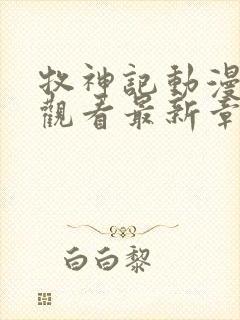 牧神記動漫
觀看最新章
白白黎